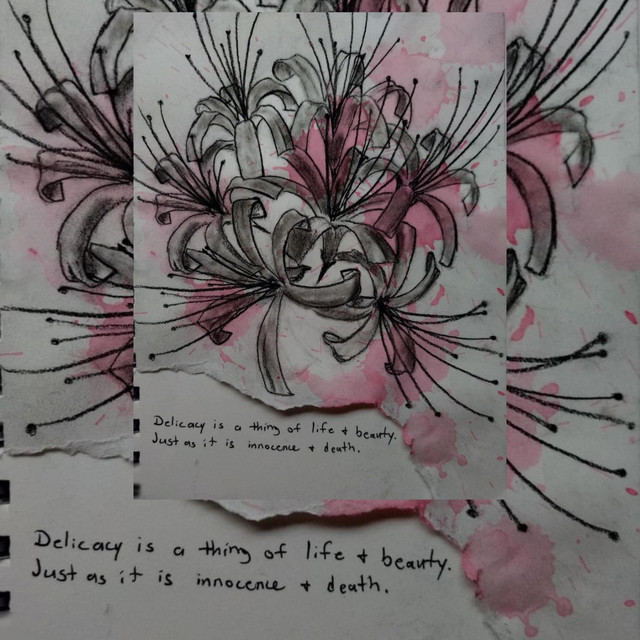 Delicacy is a thing of life + beauty.
Just as it is innocence + death.
Delicacy is a thing of life + beauty.
Just as it is innocence + death.